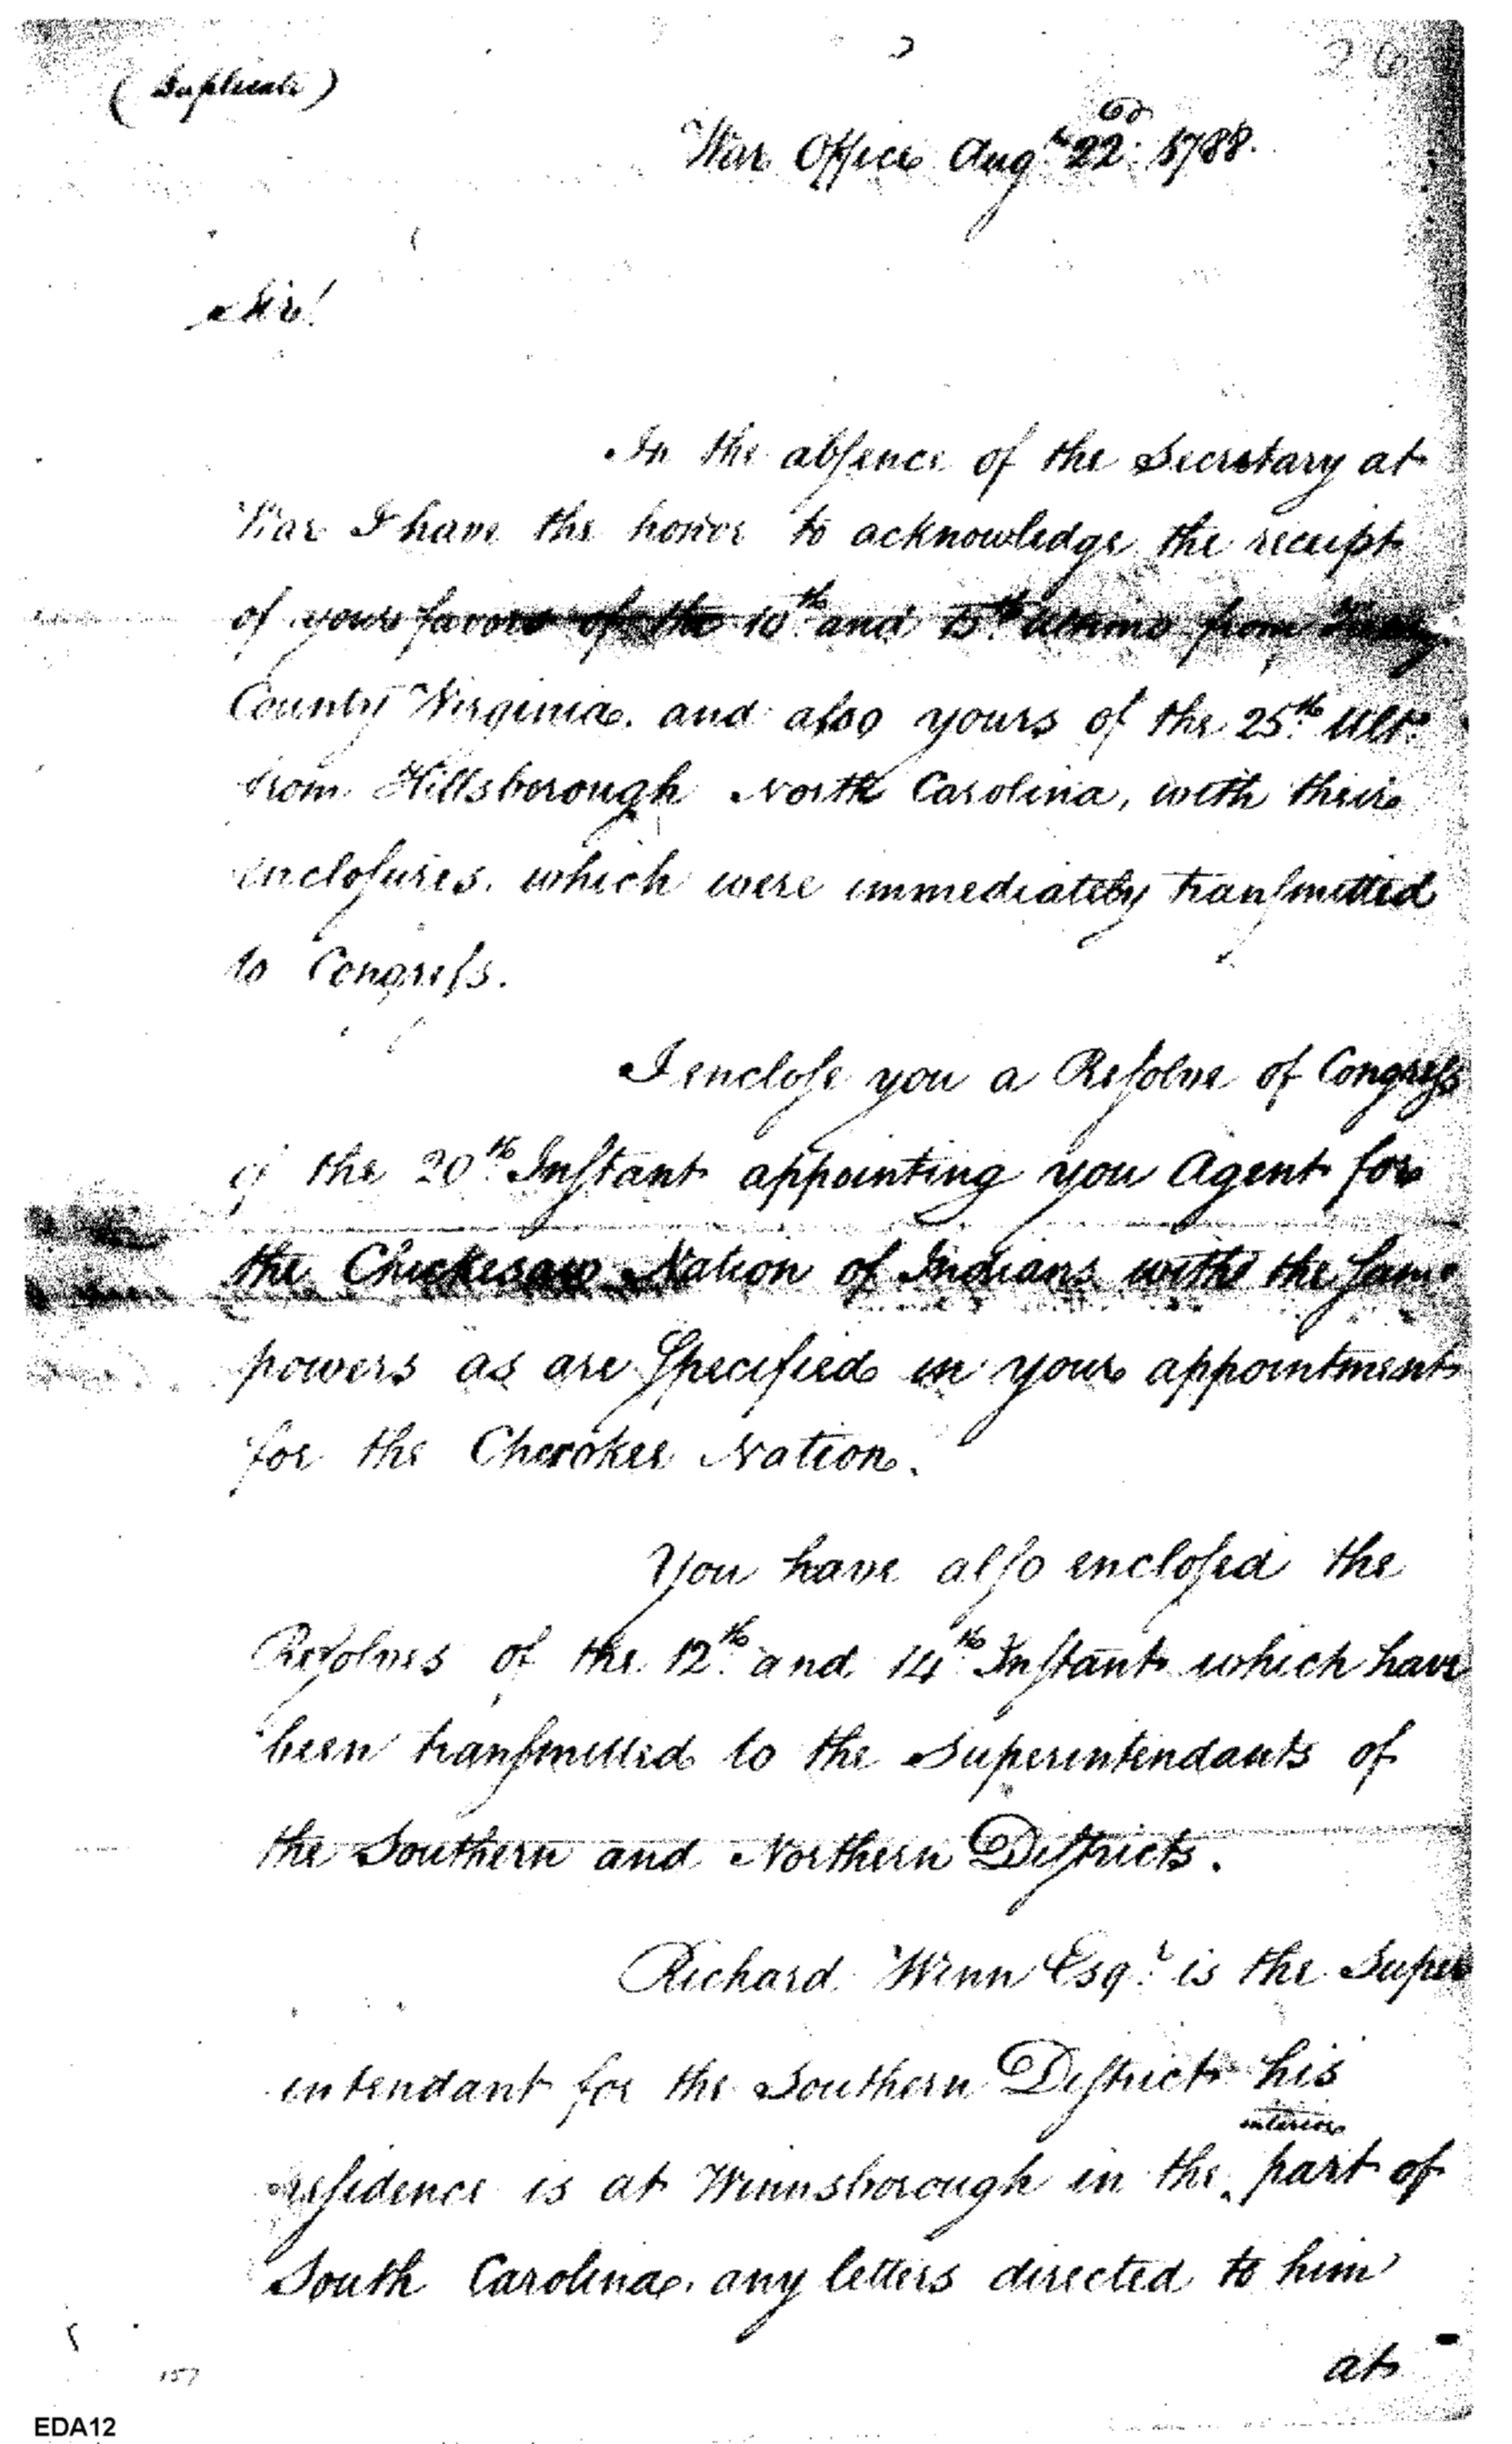 (Duplicate)
War Office Augt. 22d. 1788.
Sir!
In the absence of the Secretary at
War I have the honor to acknowledge the receipt
of your favors of the 10th. and 15th. Ultimo from
County Virginia. and also yours of the 25th. Ulto.
from Hillsborough North Carolina, with their
enclosures. which were immediately transmitted
to Congress.
I enclose you a Resolve of Congress
of the 20th. Instant appointing you Agent for
the Chickesaw Nation of Indians with the same
powers as are Specified in your appointment
for the Cherokee Nation.
You have also enclosed the
Resolves of the 12th. and 14th. Instant which have
been transmitted to the Superintendants of
the Southern and Northern Districts.
Richard Winn Esqr. is the Super
intendant for the Southern District his
interior
residence is at Winnsborough in the ‸ part of
South Carolina, any letters directed to him
at
157
EDA12